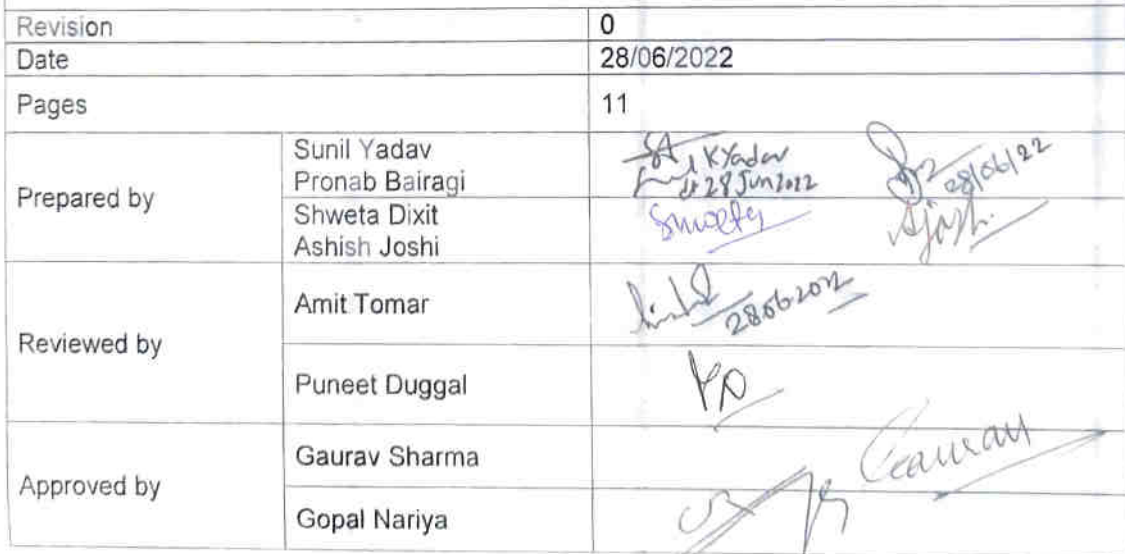 Revision 0
Date 28/06/2022
Pages 11
Prepared by
Sunil Yadav
Pronab Bairagi
KYadav
28 Jun 2022
28/06/22
Shweta Dixit
Ashish Joshi
Shweta
AJoshi
Reviewed by
Amit Tomar
28062022
Puneet Duggal
PD
Approved by
Gaurav Sharma
Gaurav
Gopal Nariya